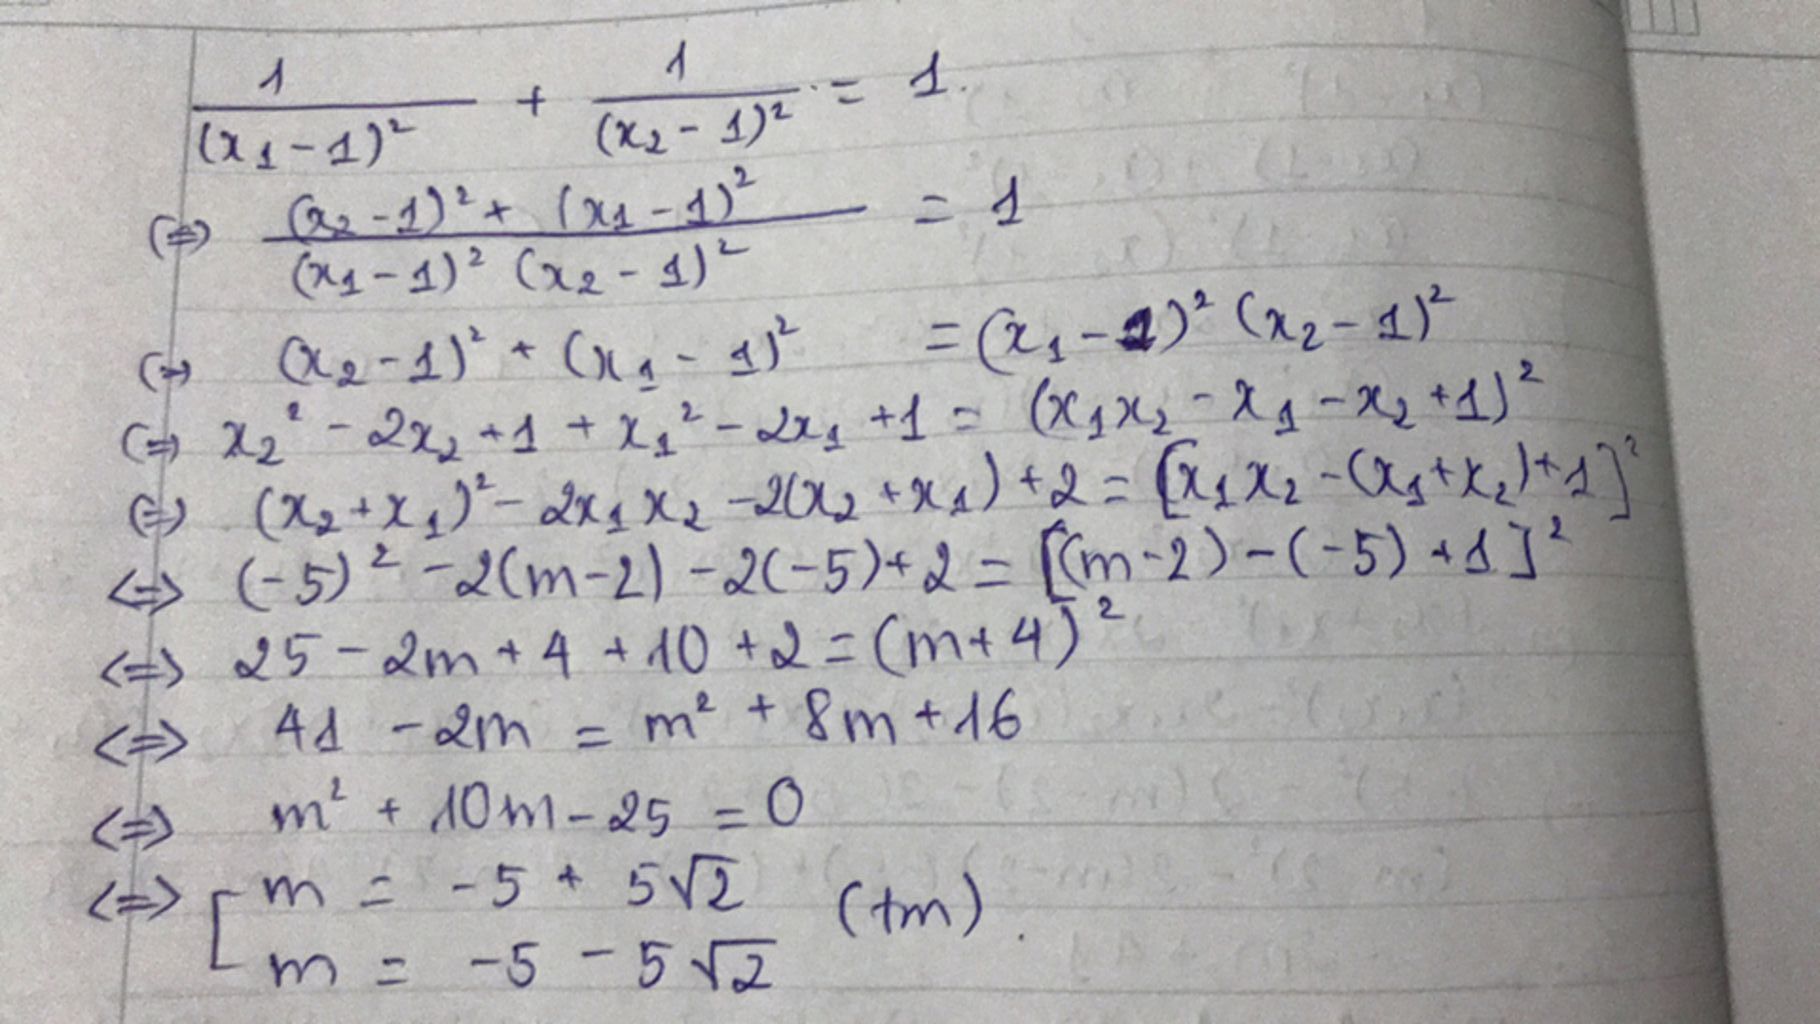 1/(x₁-1)² + 1/(x₂-1)² = 1.
(=) ((x₂-1)² + (x₁-1)²)/((x₁-1)² (x₂-1)²) = 1
(=) (x₂-1)² + (x₁-1)² = (x₁-1)² (x₂-1)²
(=) x₂² - 2x₂ + 1 + x₁² - 2x₁ + 1 = (x₁x₂ - x₁ - x₂ + 1)²
(=) (x₂+x₁)² - 2x₁x₂ - 2(x₂+x₁) + 2 = [x₁x₂ - (x₁+x₂) + 1]²
<=> (-5)² - 2(m-2) - 2(-5) + 2 = [(m-2) - (-5) + 1]²
<=> 25 - 2m + 4 + 10 + 2 = (m+4)²
<=> 41 - 2m = m² + 8m + 16
<=> m² + 10m - 25 = 0
<=> [ m = -5 + 5√2 (tm).
m = -5 - 5√2